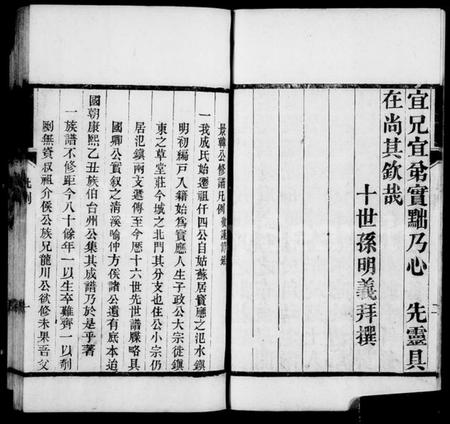 宜兄宜弟實黜乃心　先靈具
在尚其欽哉
十世孫明義拜撰
公修譜凡例
一我成氏始遷祖仟四公自姑蘇居寶應之氾水鎮
明初編戸入籍始為寶應人生子政公大宗徙鎮
東之草堂莊今城之北門其分支也住公小宗仍
居氾鎮兩支遞傳至今歷十六世先世譜牒略具
國卿公實叙之清溪喻仲方侯諸公還有底本迨
國朝康熙乙丑族伯台州公集其成譜乃於是乎著
一族譜不修距今八十餘年一以生卒難齊一以剞
劂無資叔祖介侯公族兄龍川公欲修未果吾父